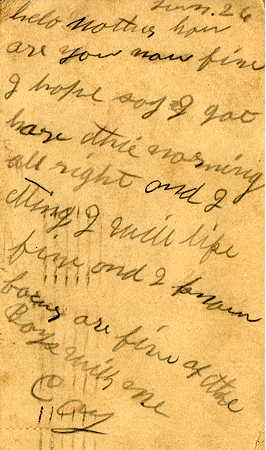 Jun. 26
helo Mother how
are you now fine
I hope so I got
hare this morning
all right and I
thing I will life
fine and I know
are fine of the
Boys with me